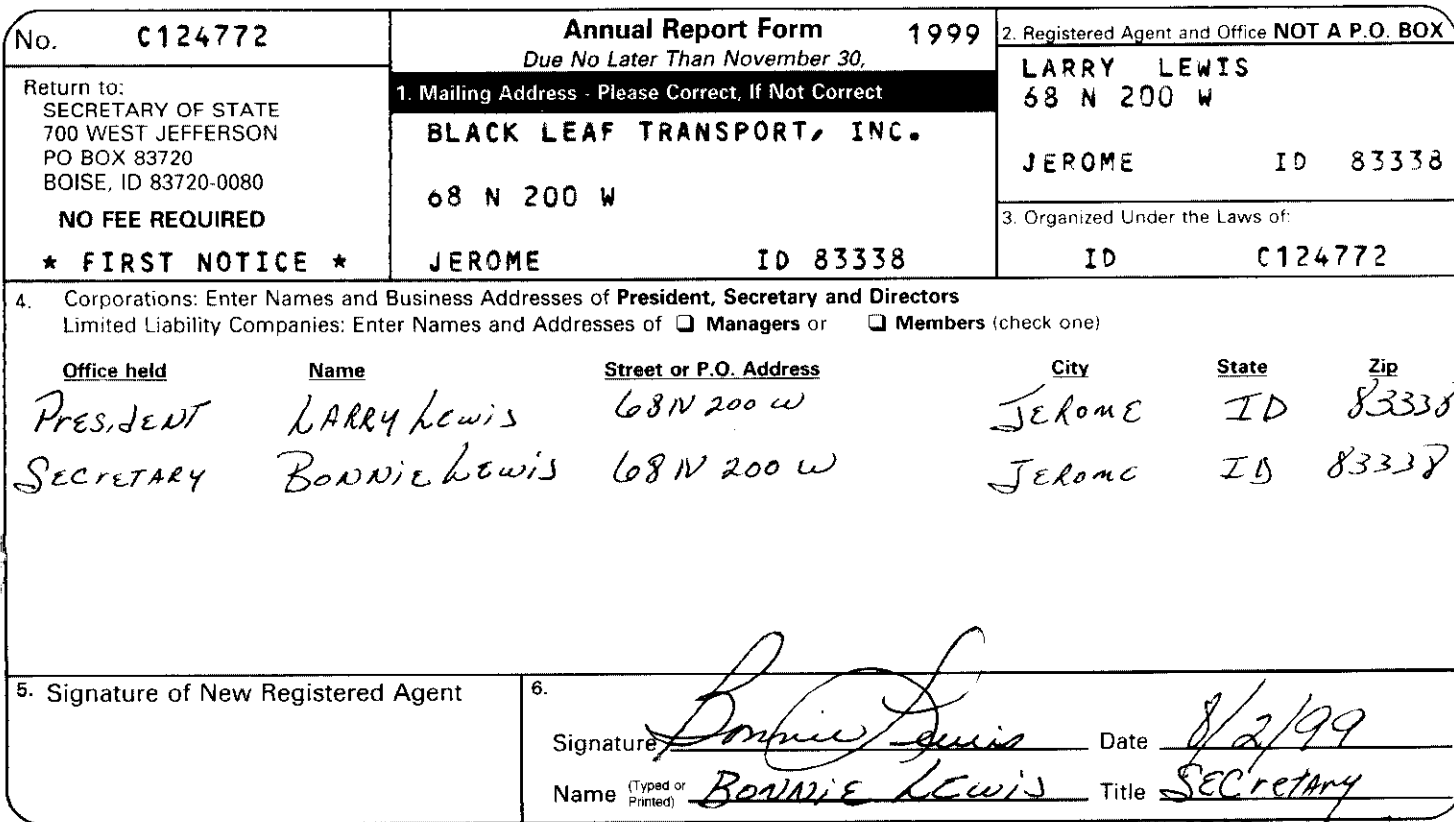 No. C124772
Return to:
SECRETARY OF STATE
700 WEST JEFFERSON
PO BOX 83720
BOISE, ID 83720-0080
NO FEE REQUIRED
* FIRST NOTICE *
Annual Report Form 1999
Due No Later Than November 30,
1. Mailing Address - Please Correct, If Not Correct
BLACK LEAF TRANSPORT, INC.
68 N 200 W
JEROME ID 83338
2. Registered Agent and Office NOT A P.O. BOX
LARRY LEWIS
68 N 200 W
JEROME ID 83338
3. Organized Under the Laws of:
ID C124772
4. Corporations: Enter Names and Business Addresses of President, Secretary and Directors
Limited Liability Companies: Enter Names and Addresses of ❑ Managers or ❑ Members (check one)
Office held Name Street or P.O. Address City State Zip
President LARRY Lewis 68 N 200 W JEROME ID 83338
SECRETARY BONNIE Lewis 68 N 200 W JEROME ID 83338
5. Signature of New Registered Agent
6.
Signature Bonnie Lewis Date 8/2/99
Name (Typed or Printed) BONNIE LEWIS Title SECretary